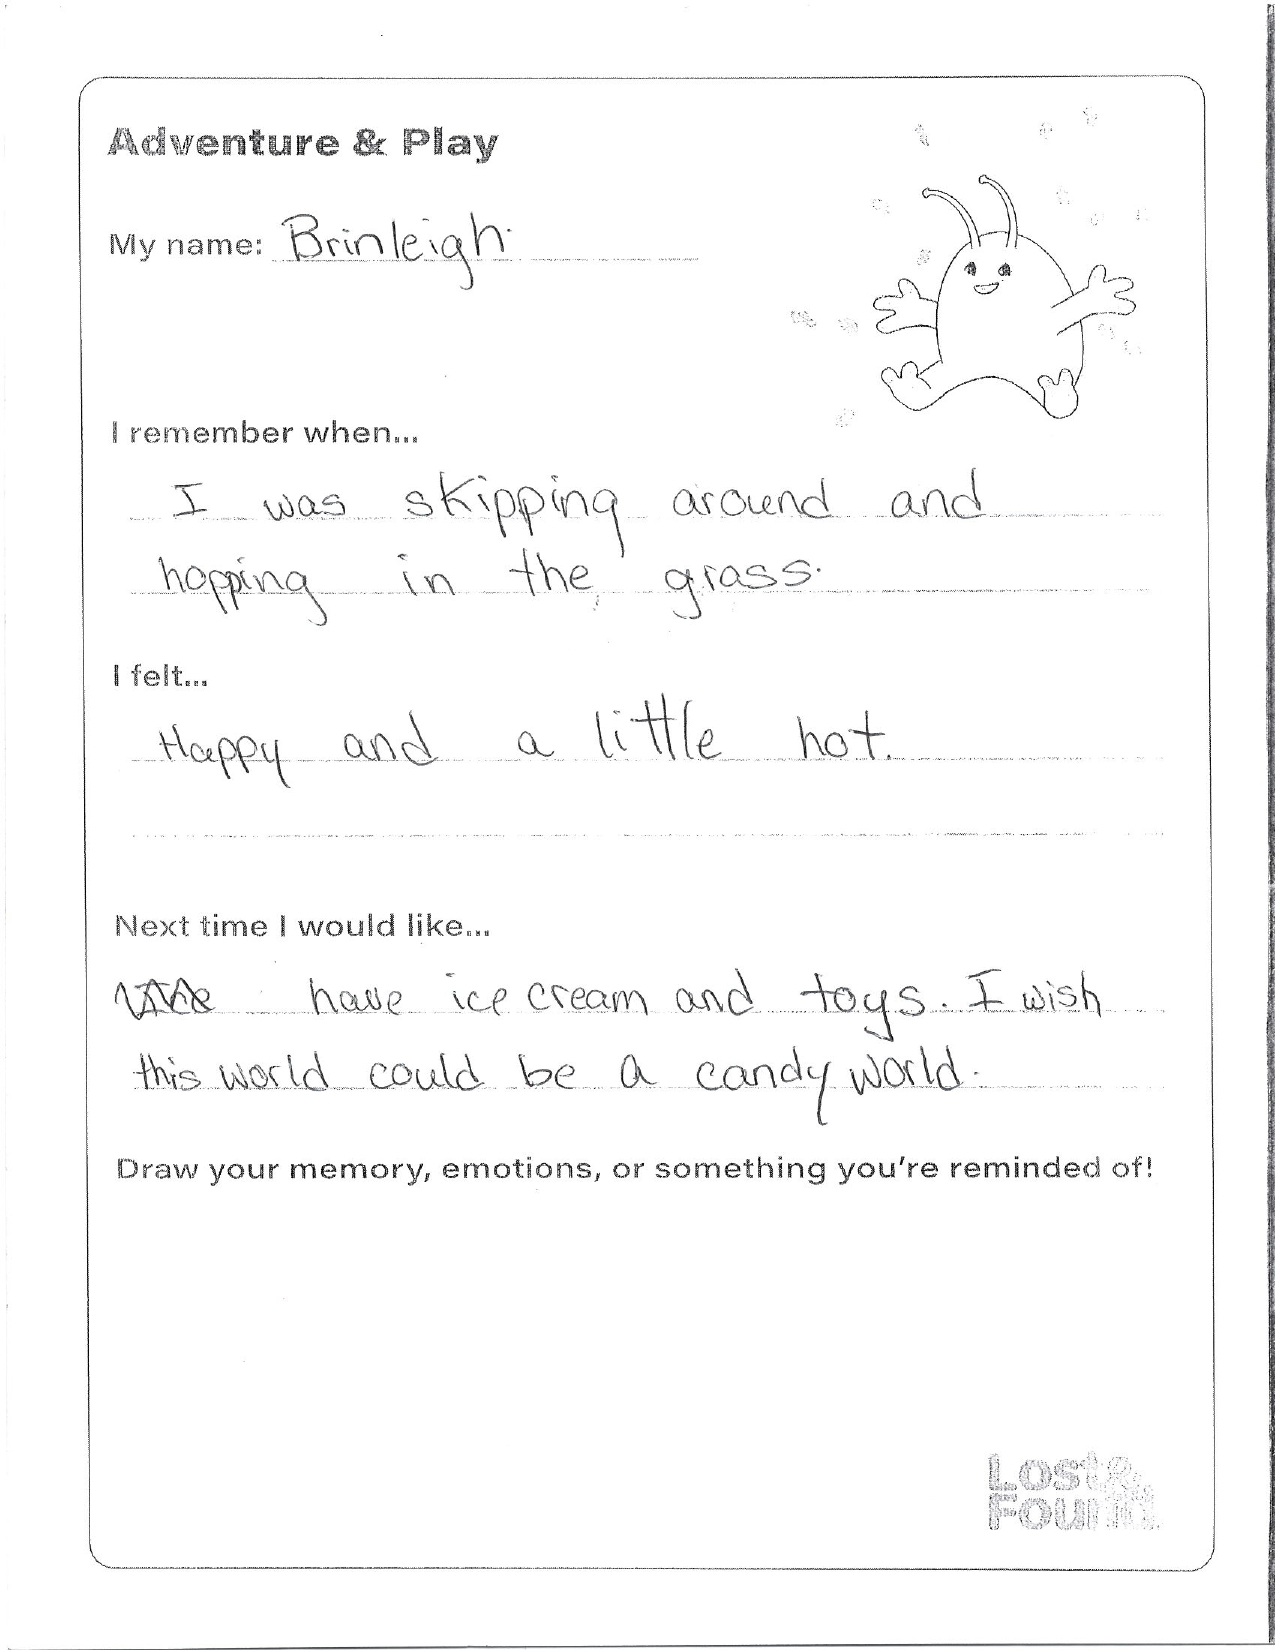 Adventure & Play
My name: Brinleigh
I remember when...
I was skipping around and
hopping in the grass.
I felt...
Happy and a little hot.
Next time I would like...
have ice cream and toys. I wish
this world could be a candy world.
Draw your memory, emotions, or something you're reminded of!
Lost &
Found